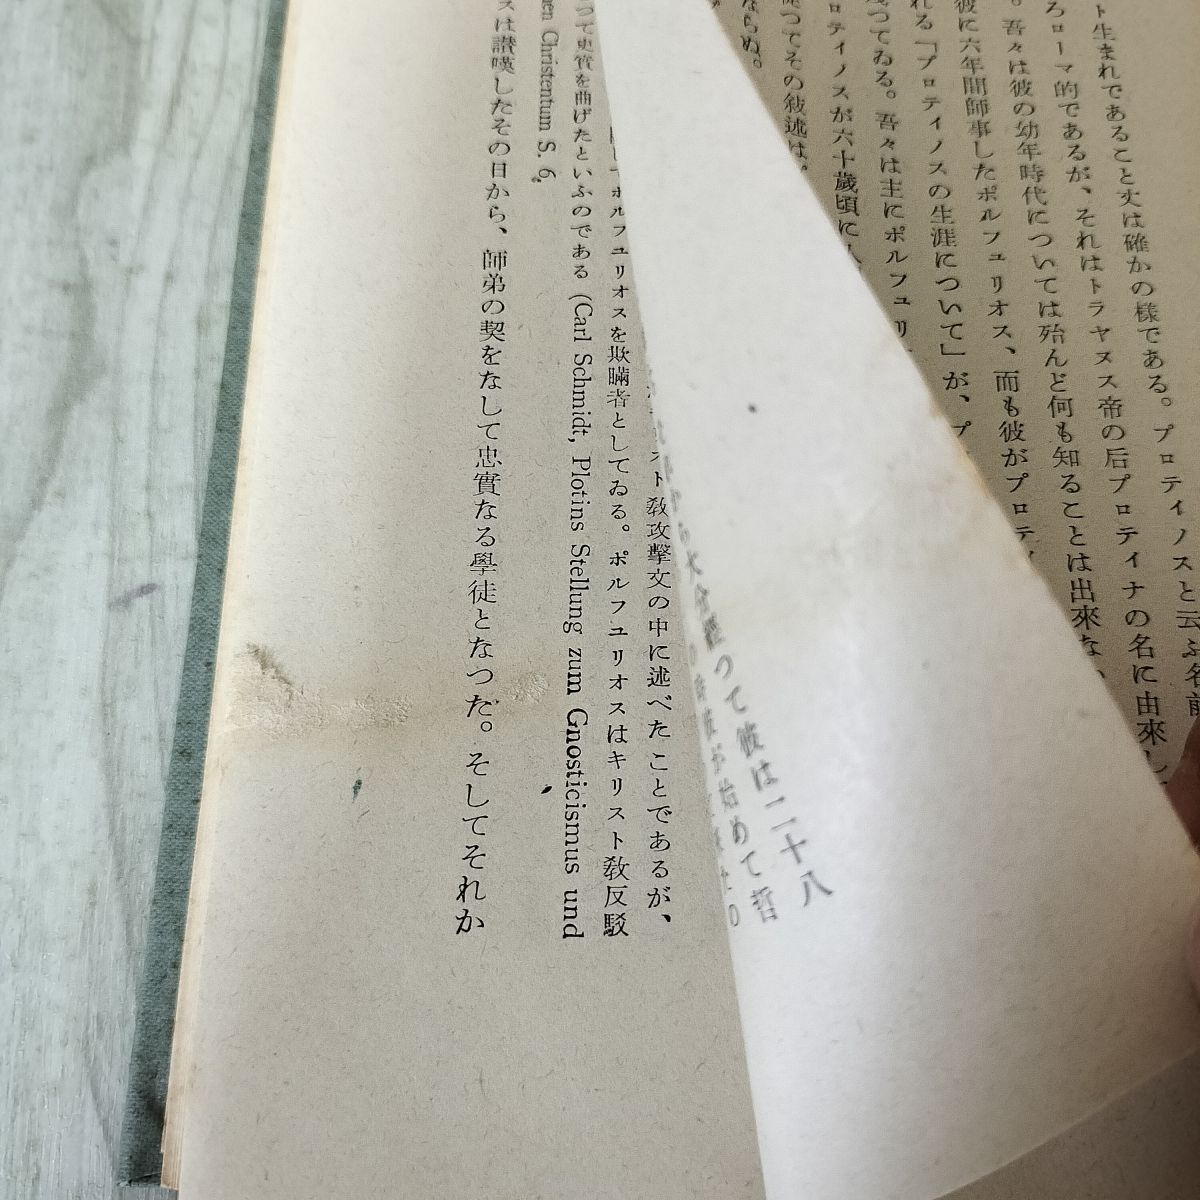 プロティノスと云ふ名前
ト生まれであること丈は確かの様である。
ろローマ的であるが、それはトラヤヌス帝の后プロティナの名に由來し
。吾々は彼の幼年時代については殆んど何も知ることは出來ない
彼に六年間師事したポルフュリオス、而も彼がプロティ
れる「プロティノスの生涯について」が、プ
つてゐる。吾々は主にポルフュリ
ロティノスが六十歲頃に
從つてその敍述は
ならぬ。
から大分經つて彼は二十八
が始めて哲
ト敎攻擊文の中に述べたことであるが、
ポルフュリオスを欺瞞者としてゐる。ポルフュリオスはキリスト敎反駁
つて史實を曲げたといふのである (Carl Schmidt, Plotins Stellung zum Gnosticismus und
en Christentum S. 6.
スは讃嘆したその日から、師弟の契をなして忠實なる學徒となつた。そしてそれか